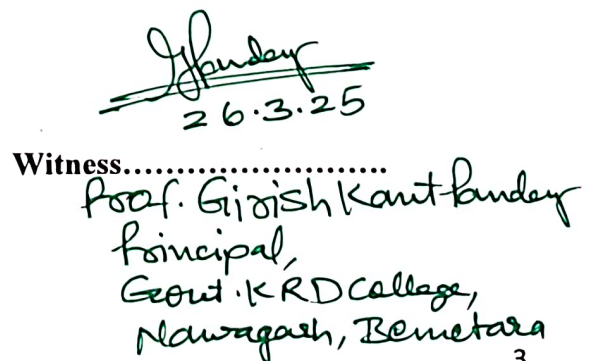 GPandey
26.3.25
Witness........................
Prof. Girish Kant Pandey
Principal,
Govt. KRD College,
Nawagarh, Bemetara
3